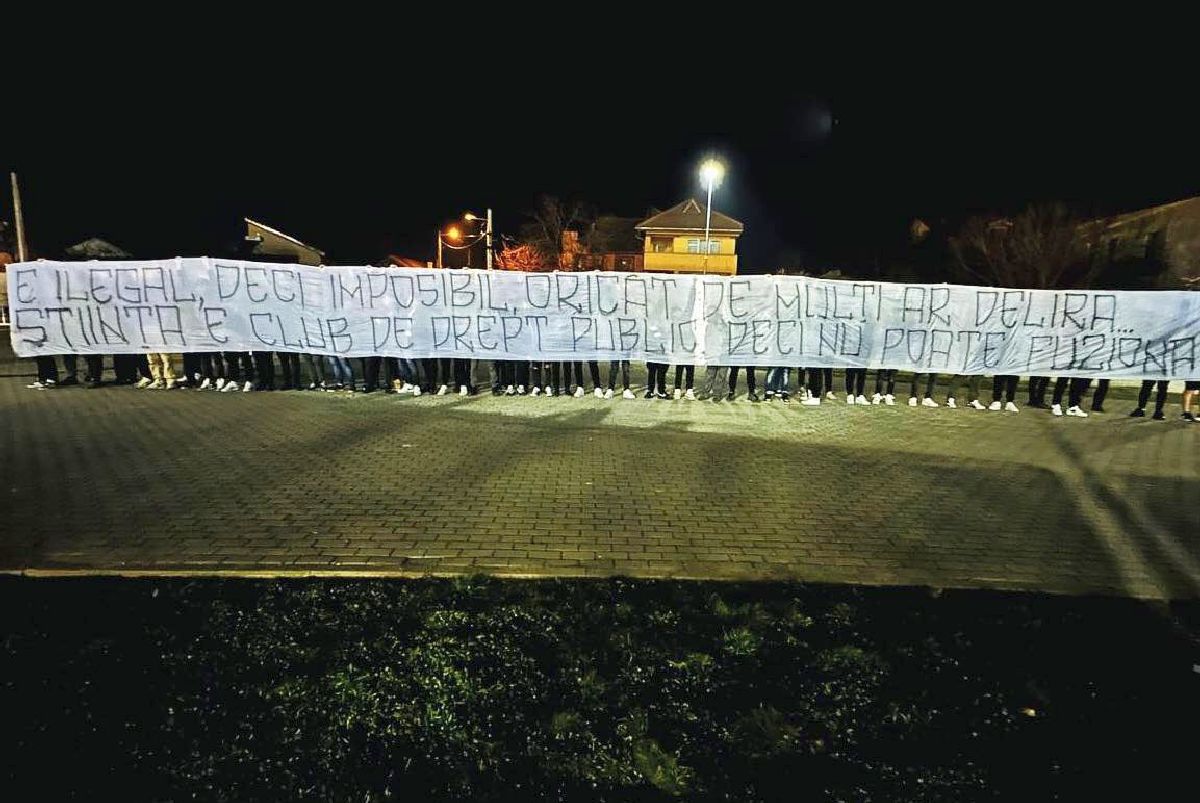 E ILEGAL, DECI IMPOSIBIL, ORICÂT DE MULTI AR DELIRA...
STIINTA E CLUB DE DREPT PUBLIC, DECI NU POATE FUZIONA